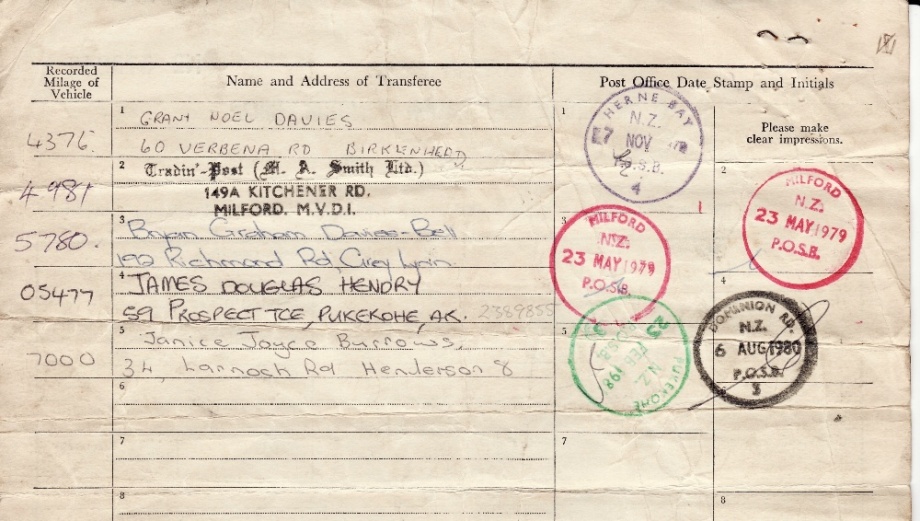 Recorded
Milage of
Vehicle
Name and Address of Transferee
Post Office Date Stamp and Initials
Please make
clear impressions.
4376.
1 GRANT NOEL DAVIES
60 VERBENA RD BIRKENHEAD
4981
2 Tradin'-Post (M. A. Smith Ltd.)
149A KITCHENER RD.
MILFORD. M.V.D.I.
5780.
3 Bryan Graham Davies-Bell
192 Richmond Rd, Grey Lynn.
05477
4 JAMES DOUGLAS HENDRY
59 PROSPECT TCE, PUKEKOHE, AK. 2389855
7000
5 Janice Joyce Burrows,
34, Rd Henderson 8
6
7
8
1
HERNE BAY
N.Z.
NOV
P.O.S.B.
4
2
MILFORD
N.Z.
23 MAY 1979
P.O.S.B.
3
MILFORD
N.Z.
23 MAY 1979
P.O.S.B.
4
DOMINION RD.
N.Z.
6 AUG 1980
P.O.S.B.
3
5
PUKEKOHE
N.Z.
23 FEB 198
7
8